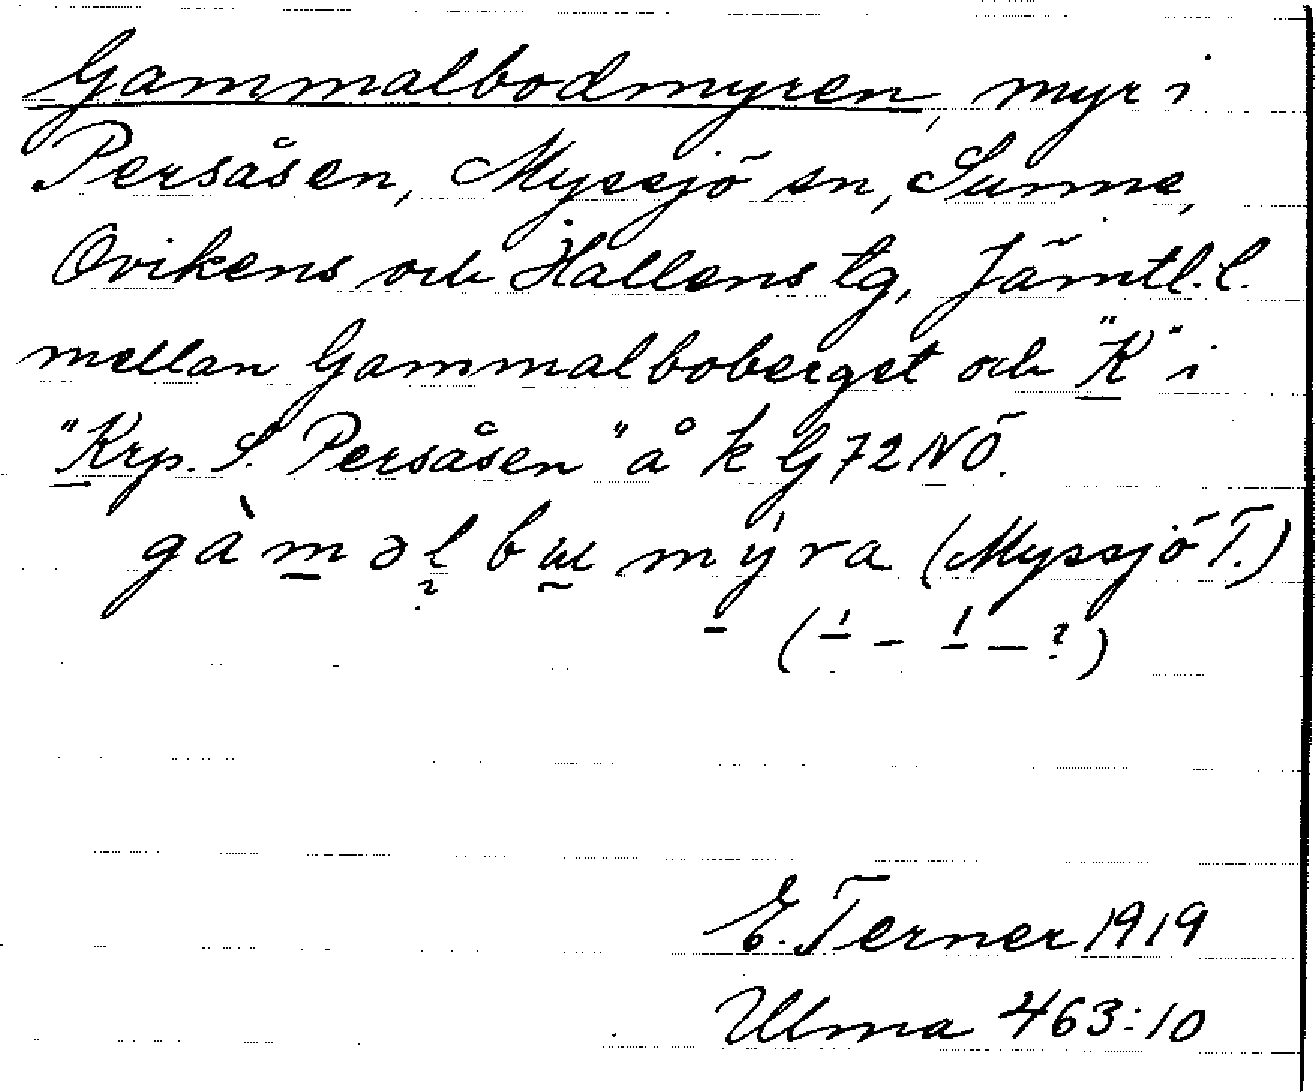 Gammalbodmyren, myr i
Persåsen, Myssjö sn, Sunne,
Ovikens och Hallens tg, Jämtl. l.
mellan Gammalboberget och "K" i
"Krp. S. Persåsen" å k G 72 NÖ.
gàməl bɯ mýra (Myssjö T.)
E. Terner 1919
Ulma 463:10